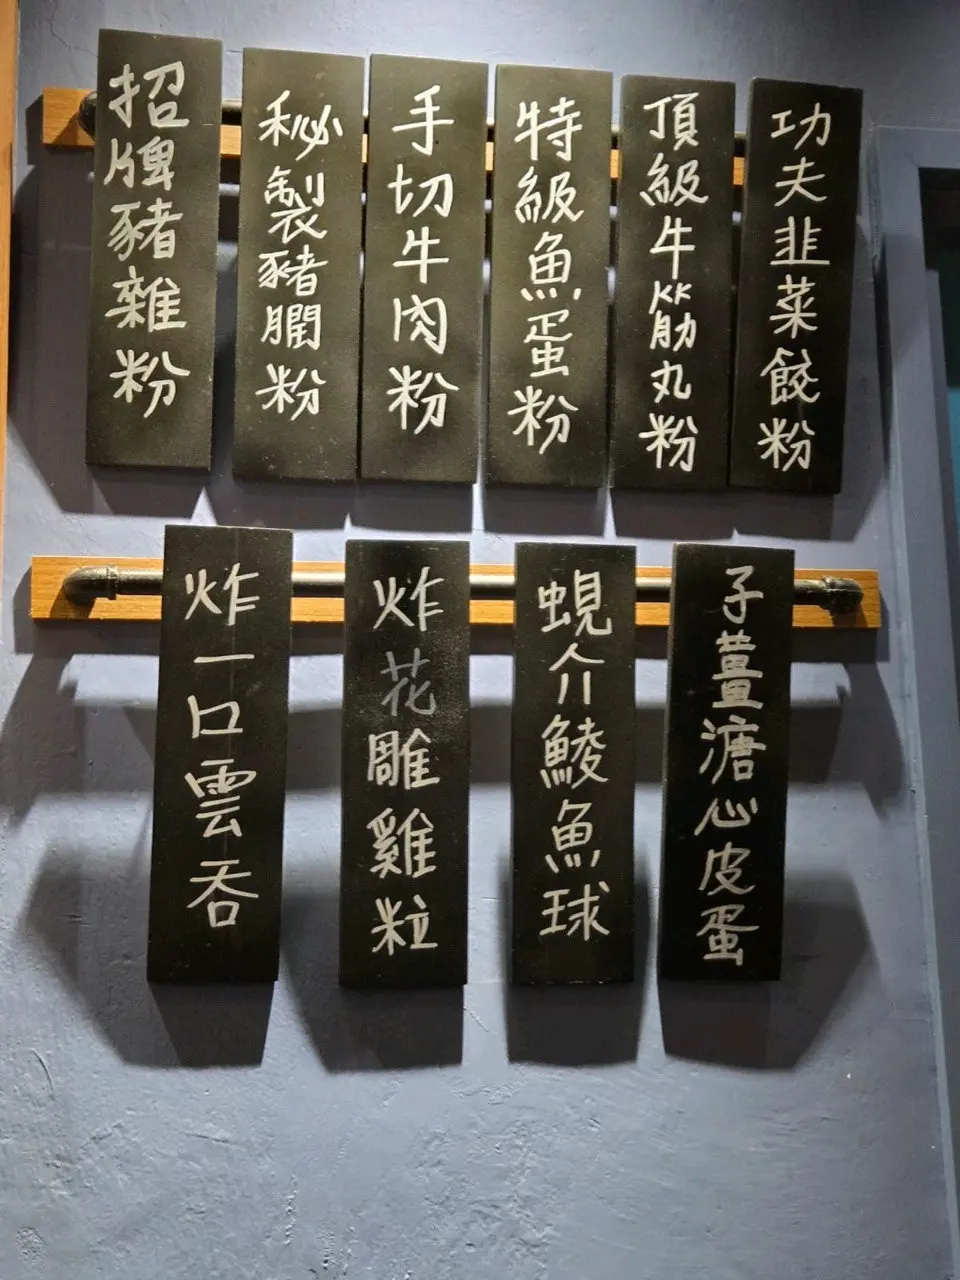 招牌豬雜粉
秘製豬膶粉
手切牛肉粉
特級魚蛋粉
頂級牛筋丸粉
功夫韭菜餃粉
炸一口雲吞
炸花雕雞粒
蜆介鯪魚球
子薑溏心皮蛋